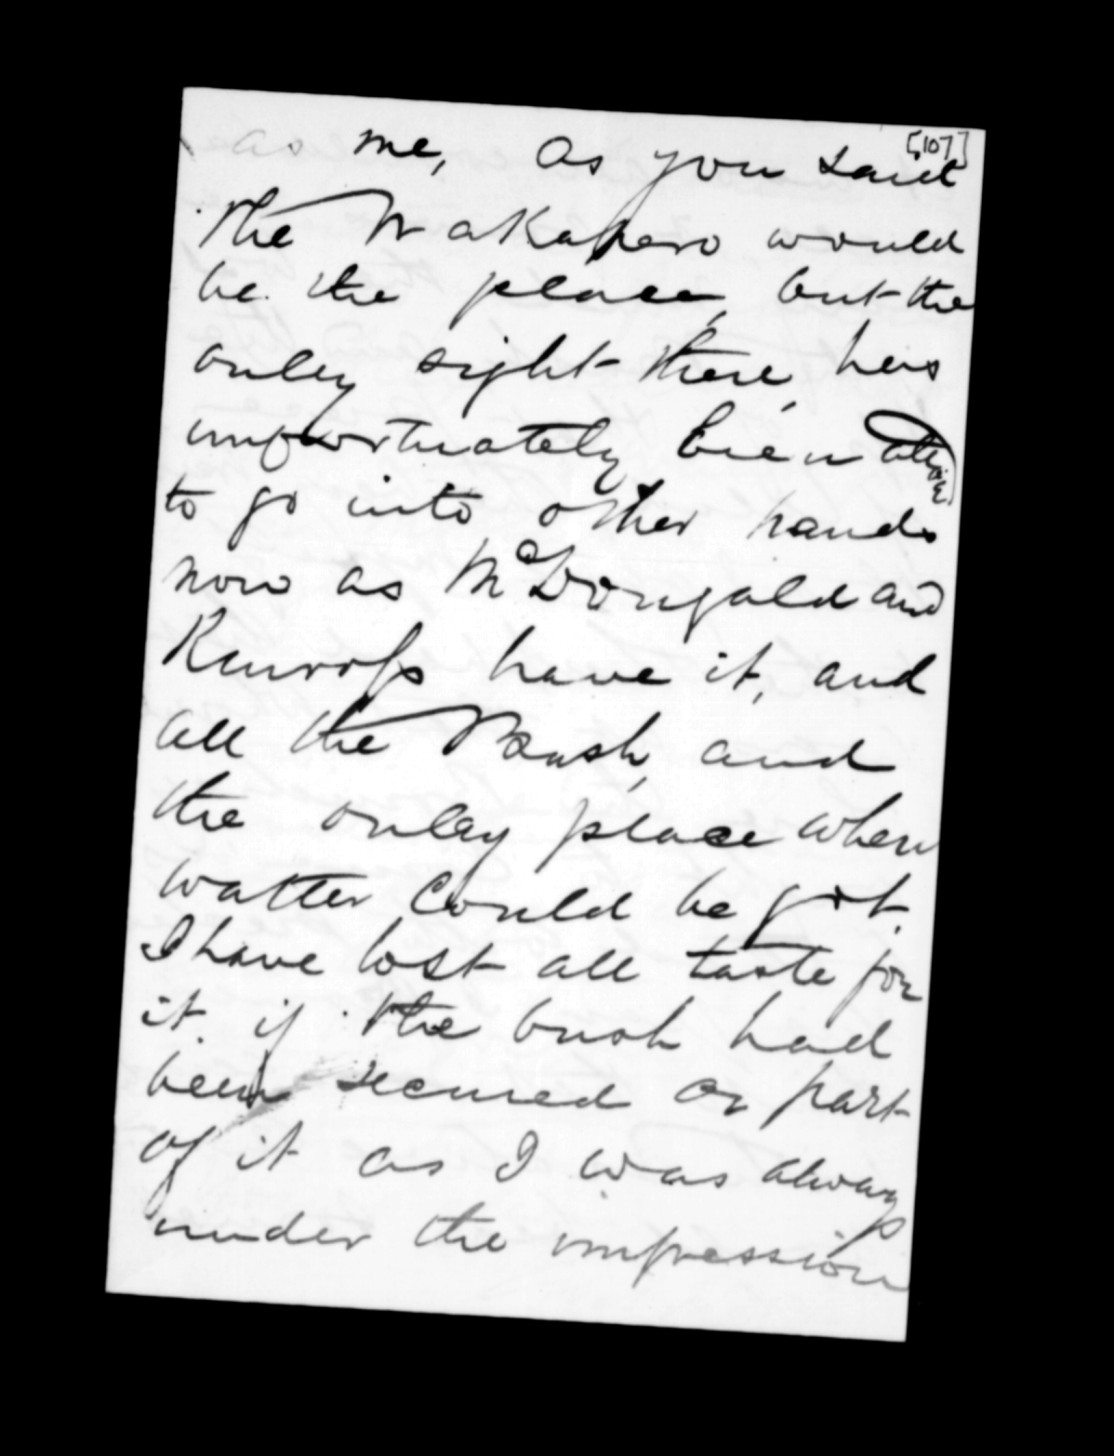 [107]
as me, as you said
the Wakapero would
be the place, but the
onley sight there, has
unfortuately been
to go into other hands
now as McDongald and
have it, and
all the Bush, and
the onley place when
watter could be got.
I have lost all taste for
it. if the bush had
been secured or part
of it as I was always
under the impression